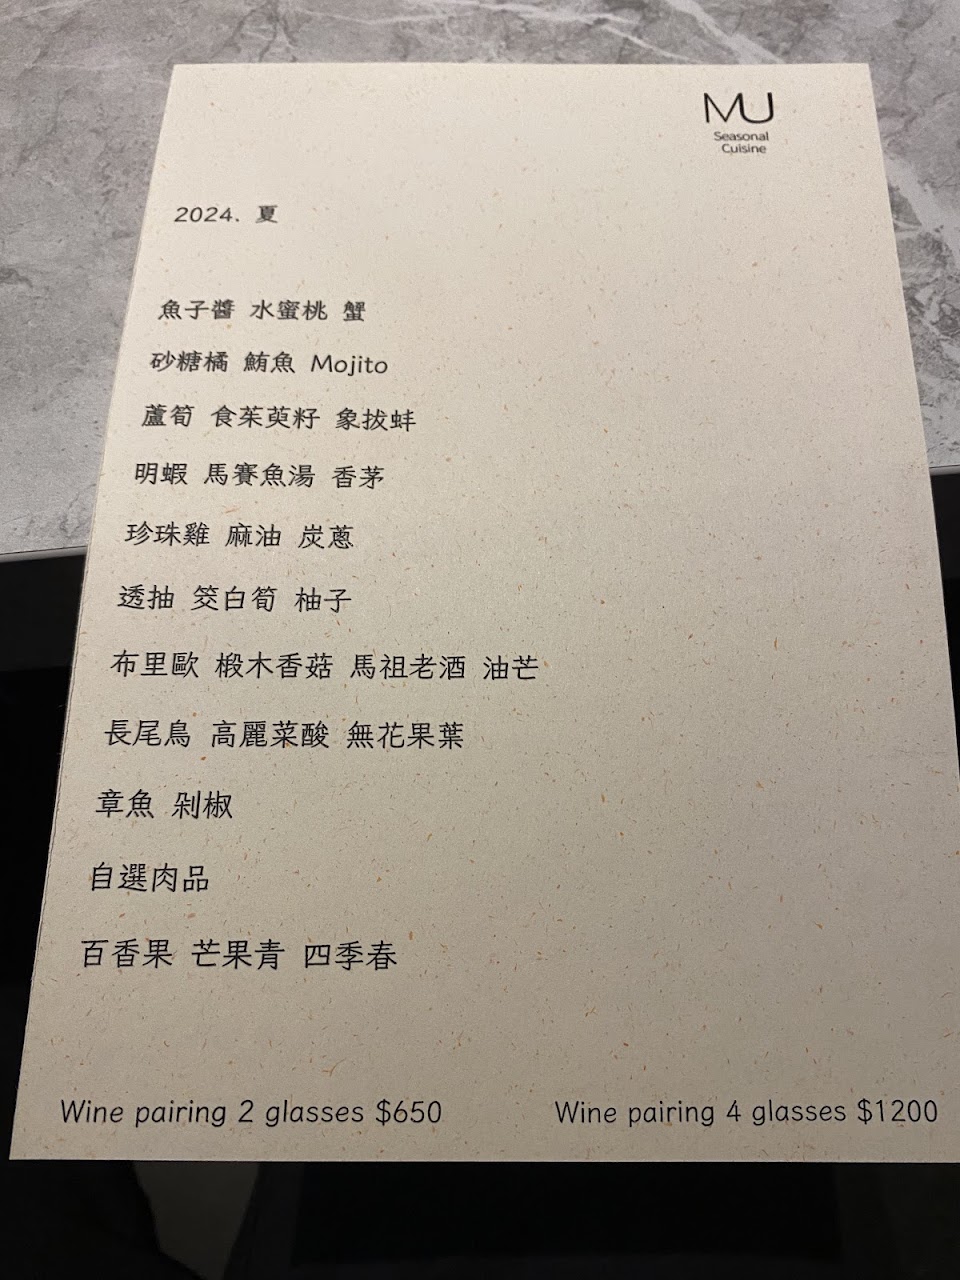 MU
Seasonal
Cuisine
2024. 夏
魚子醬 水蜜桃 蟹
砂糖橘 鮪魚 Mojito
蘆筍 食茱萸籽 象拔蚌
明蝦 馬賽魚湯 香茅
珍珠雞 麻油 炭蔥
透抽 筊白筍 柚子
布里歐 椴木香菇 馬祖老酒 油芒
長尾鳥 高麗菜酸 無花果葉
章魚 剁椒
自選肉品
百香果 芒果青 四季春
Wine pairing 2 glasses $650
Wine pairing 4 glasses $1200